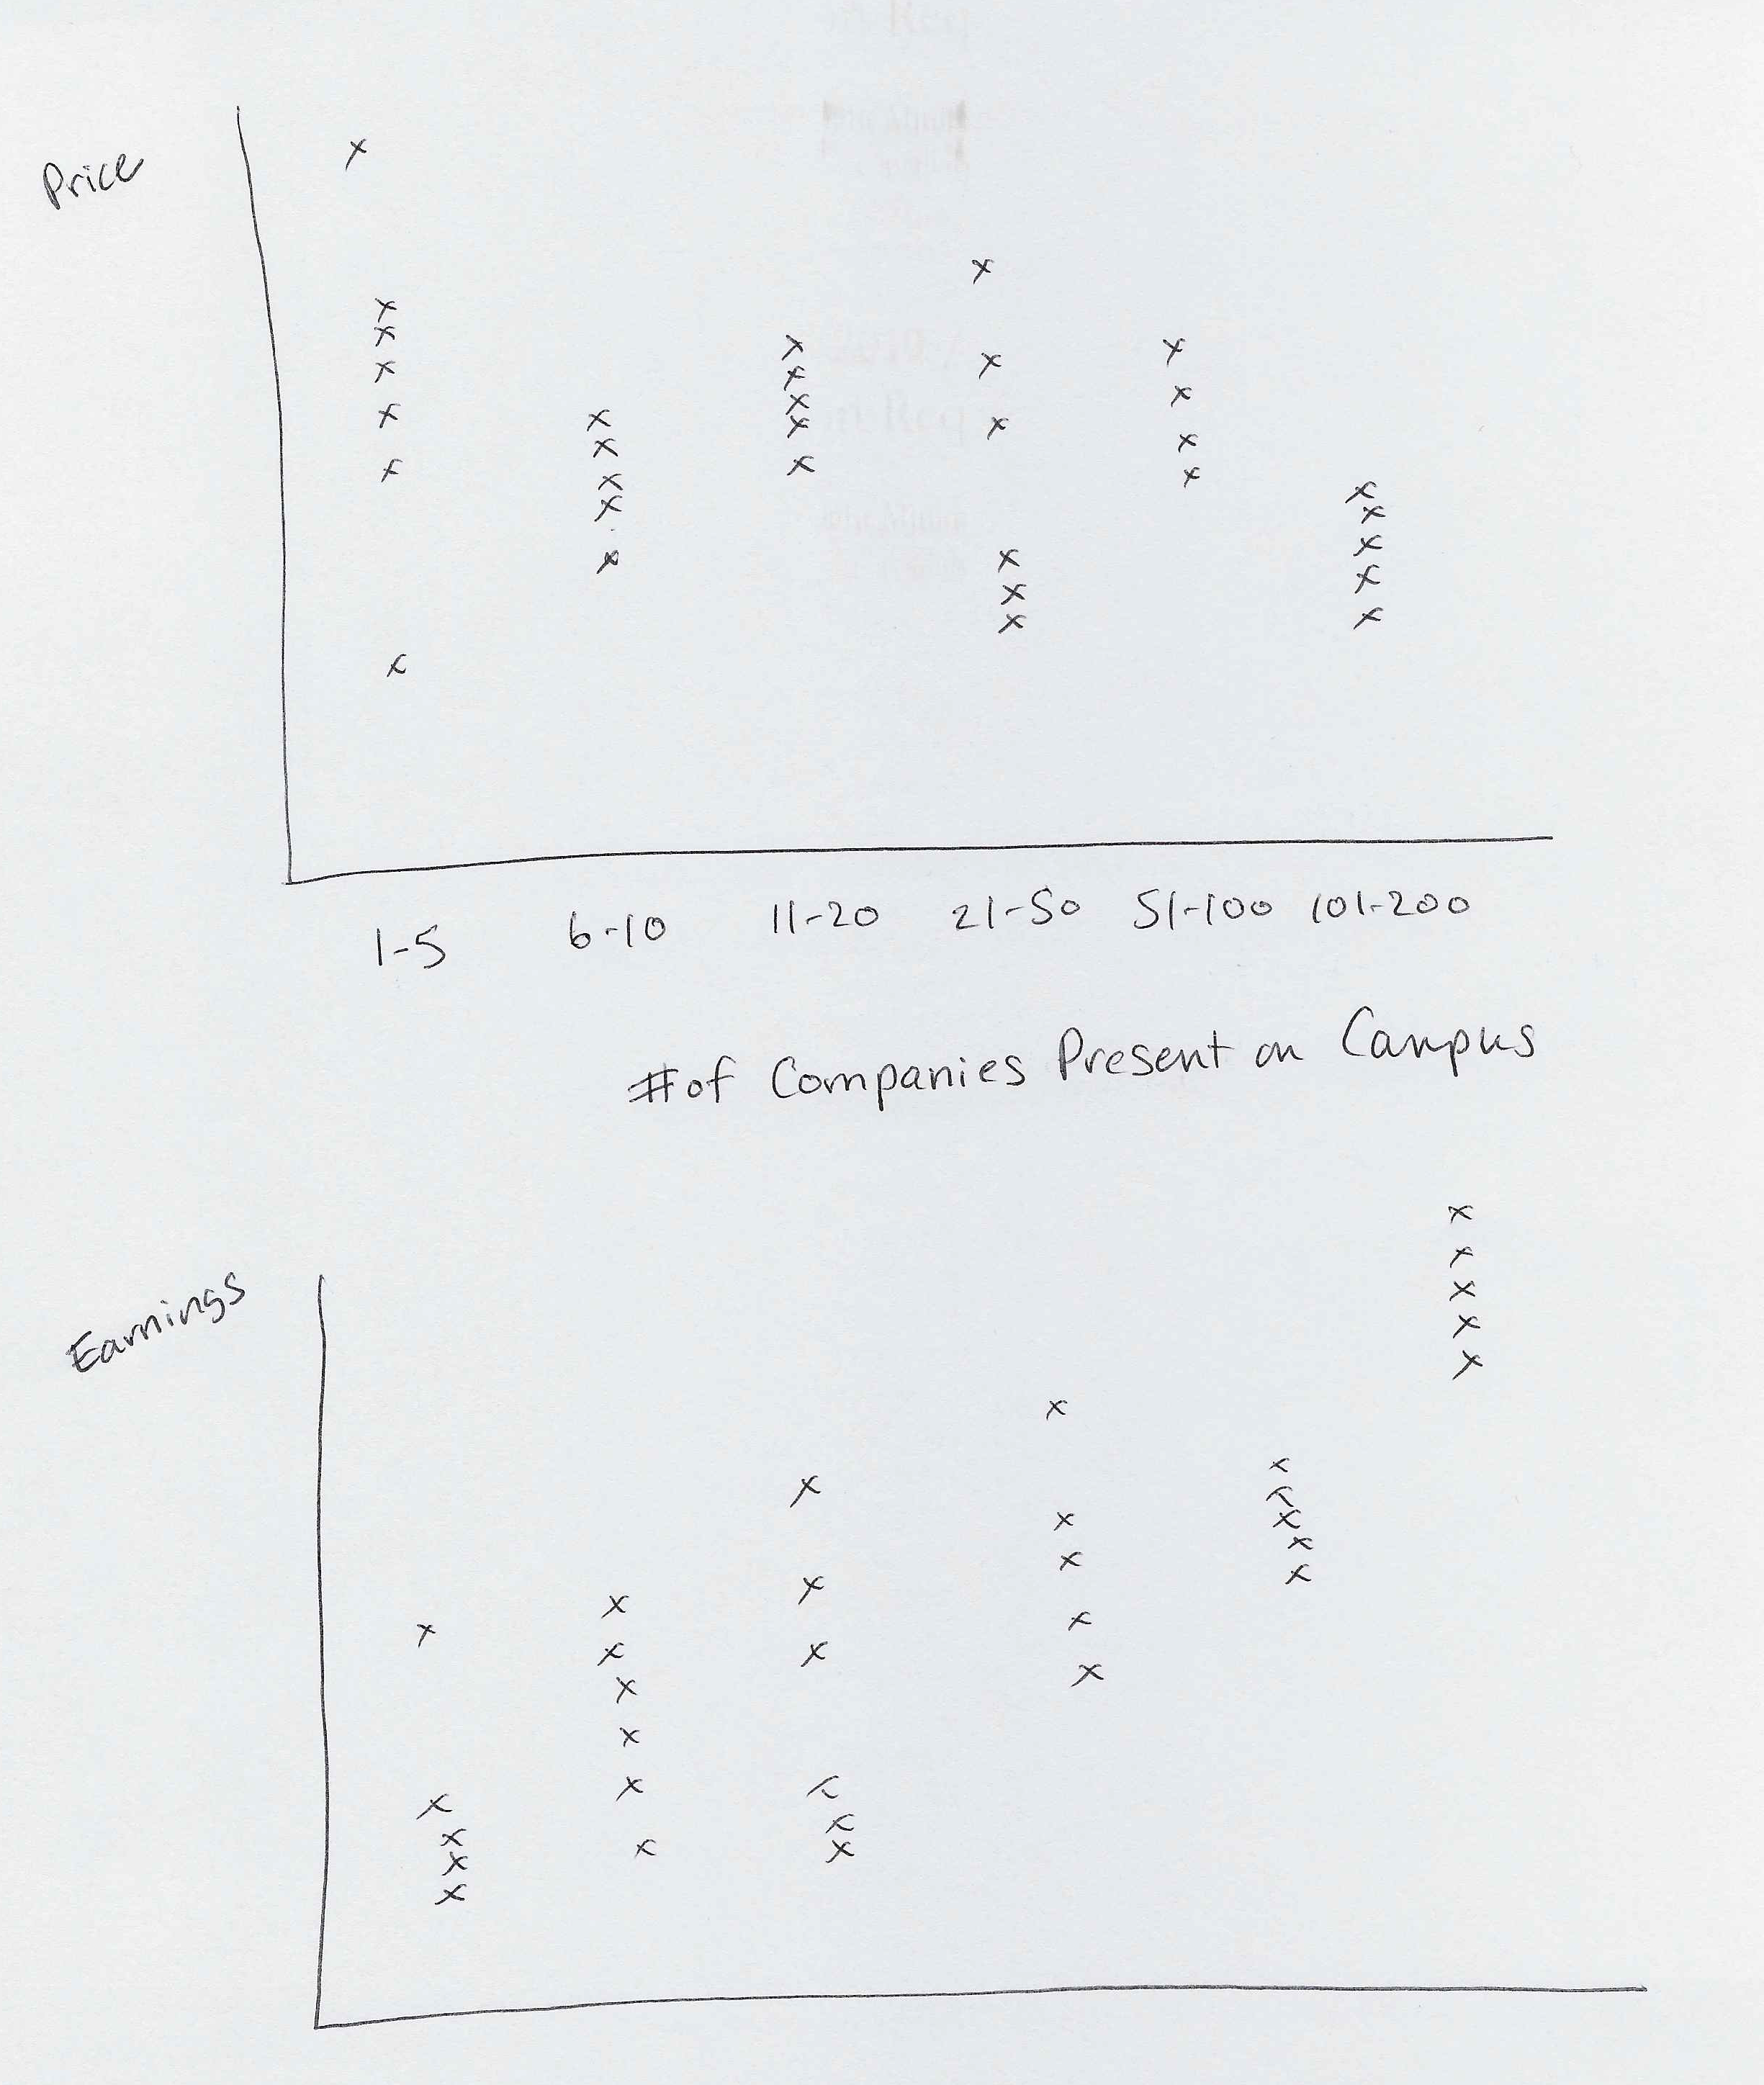 Price
1-5 6-10 11-20 21-50 51-100 101-200
# of Companies Present on Campus
Earnings